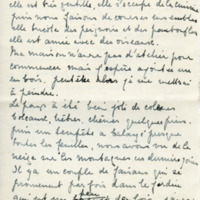 elle est très gentille, elle s'occupe de la cuisine
puis nous faisons des courses ensembles
elle bricole des peignoirs et des pantoufles
elle est amie avec des oiseaux.
Ma maison n'a pas d'atelier pour
commencer mais j'espère
en bois, peut-être alors j'ai me mettrai
à peindre.
Le pays a été bien joli de couleurs
bouleaux, hêtres, chênes quelques pins.
puis un tempête a balayé presque
toutes les feuilles, nous avons vu de la
neige sur les montagnes ces derniers jours
Il y a un couple de faisans qui se
promenent parfois dans le jardin